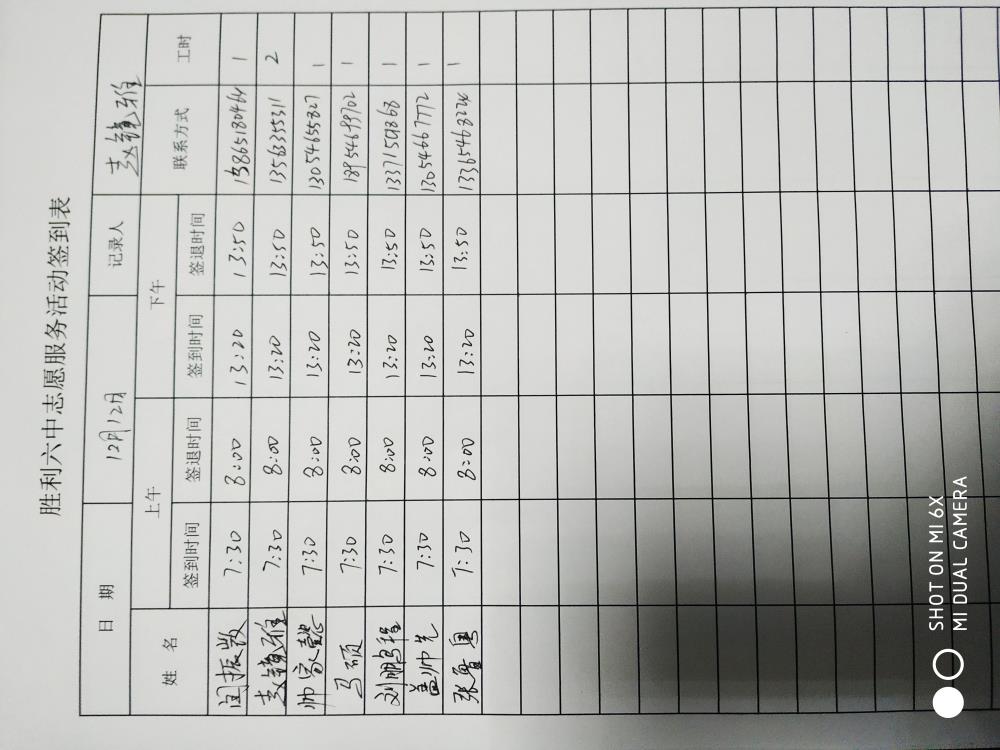 胜利六中志愿服务活动签到表
日 期 12月12日 记录人 赵镜雅
姓 名 上午 下午 联系方式 工时
签到时间 签退时间 签到时间 签退时间
闫振敬 7:30 8:00 13:20 13:50 1
赵镜雅 7:30 8:00 13:20 13:50 13563355311 2
帅家懿 7:30 8:00 13:20 13:50 13054655827 1
马硕 7:30 8:00 13:20 13:50 18954699702 1
刘鹏程 7:30 8:00 13:20 13:50 1
盖帅先 7:30 8:00 13:20 13:50 13054667772 1
张鲁 7:30 8:00 13:20 13:50 1
SHOT ON MI 6X
MI DUAL CAMERA